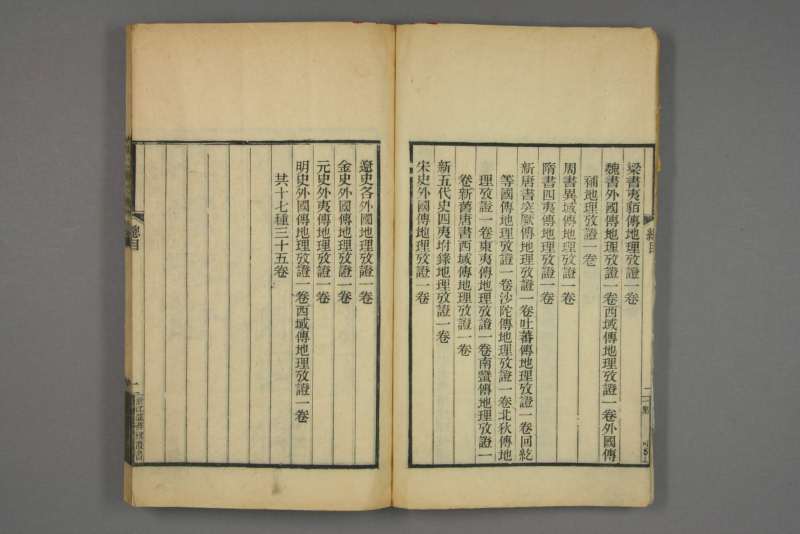 梁書夷貊傳地理攷證一卷
魏書外國傳地理攷證一卷西域傳地理攷證一卷外國傳
補地理攷證一卷
周書異域傳地理攷證一卷
隋書四夷傳地理攷證一卷
新唐書突厥傳地理攷證一卷吐蕃傳地理攷證一卷回紇
等國傳地理攷證一卷沙陀傳地理攷證一卷北狄傳地
理攷證一卷東夷傳地理攷證一卷南蠻傳地理攷證一
卷新舊唐書西域傳地理攷證一卷
新五代史四夷附錄地理攷證一卷
宋史外國傳地理攷證一卷
遼史各外國地理攷證一卷
金史外國傳地理攷證一卷
元史外夷傳地理攷證一卷
明史外國傳地理攷證一卷西域傳地理攷證一卷
共十七種三十五卷
總目
總目